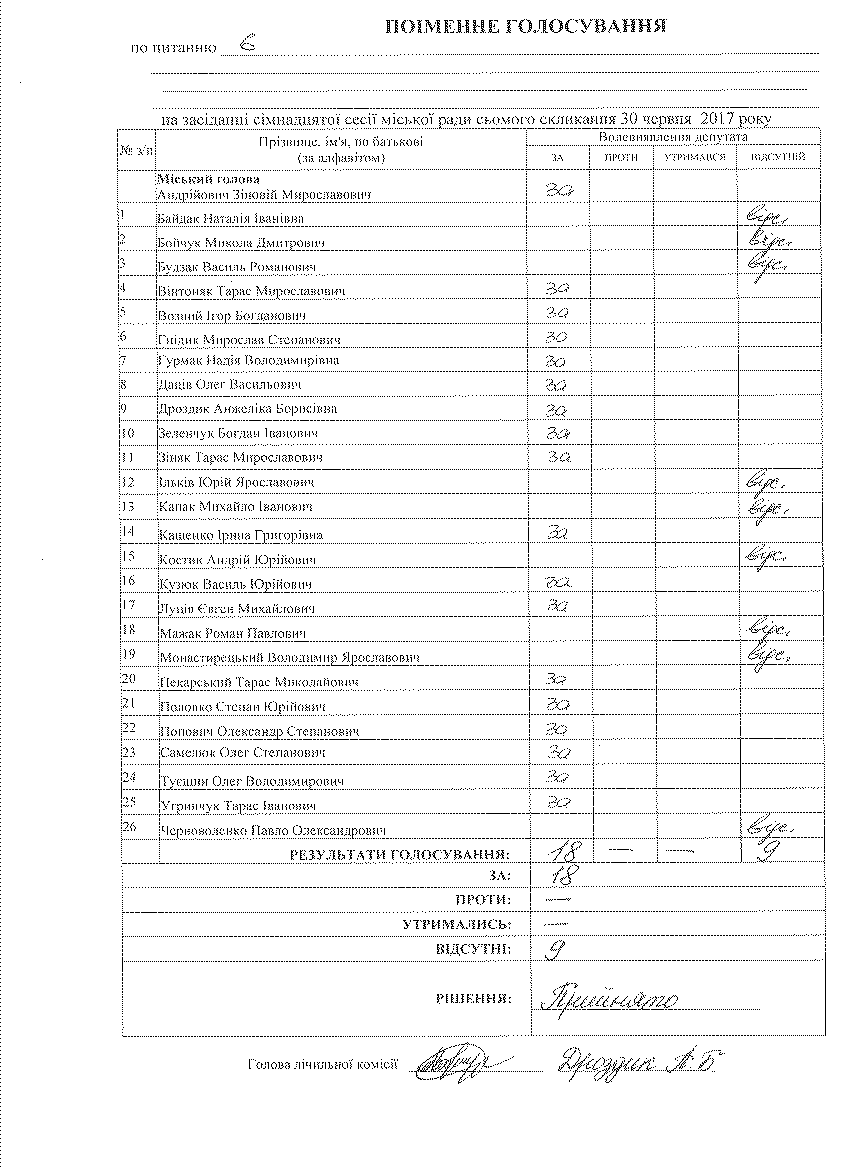 ПОІМЕННЕ ГОЛОСУВАННЯ
по питанню 6
на засіданні сімнадцятої сесії міської ради сьомого скликання 30 червня 2017 року
№ з/п Прізвище, ім'я, по батькові Волевиявлення депутата
(за алфавітом) ЗА ПРОТИ УТРИМАВСЯ ВІДСУТНІЙ
Міський голова
Андрійович Зіновій Мирославович за
1 Байдак Наталія Іванівна відс.
2 Бойчук Микола Дмитрович відс.
3 Будзак Василь Романович відс.
4 Вінтоняк Тарас Мирославович за
5 Возний Ігор Богданович за
6 Гнідик Мирослав Степанович за
7 Гурмак Надія Володимирівна за
8 Данів Олег Васильович за
9 Дроздик Анжеліка Борисівна за
10 Зеленчук Богдан Іванович за
11 Зіняк Тарас Мирославович за
12 Ільків Юрій Ярославович відс.
13 Капак Михайло Іванович відс.
14 Кащенко Ірина Григорівна за
15 Костик Андрій Юрійович відс.
16 Кузюк Василь Юрійович за
17 Луців Євген Михайлович за
18 Мажак Роман Павлович відс.
19 Монастирецький Володимир Ярославович відс.
20 Пекарський Тарас Миколайович за
21 Половко Степан Юрійович за
22 Попович Олександр Степанович за
23 Самелюк Олег Степанович за
24 Туєшин Олег Володимирович за
25 Угринчук Тарас Іванович за
26 Черноволенко Павло Олександрович відс.
РЕЗУЛЬТАТИ ГОЛОСУВАННЯ: 18 — — 9
ЗА: 18
ПРОТИ: —
УТРИМАЛИСЬ: —
ВІДСУТНІ: 9
РІШЕННЯ: Прийнято
Голова лічильної комісії Дроздик А.Б